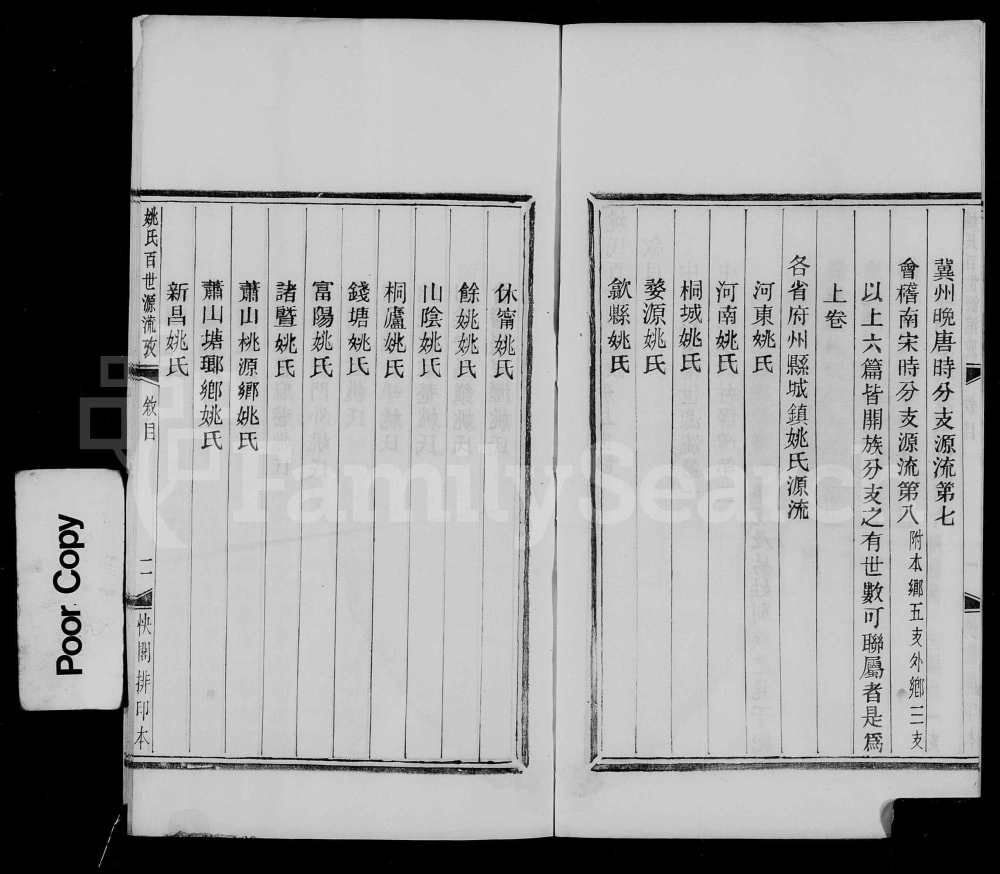 冀州晚唐時分支源流第七
會稽南宋時分支源流第八附本鄉五支外鄉三支
以上六篇皆開族分支之有世數可聯屬者是爲
上卷
各省府州縣城鎮姚氏源流
河東姚氏
河南姚氏
桐城姚氏
婺源姚氏
歙縣姚氏
休甯姚氏
餘姚姚氏
山陰姚氏
桐廬姚氏
錢塘姚氏
富陽姚氏
諸暨姚氏
蕭山桃源鄉姚氏
蕭山塘瑯鄉姚氏
新昌姚氏
姚氏百世源流攷
敘目
二
快閣排印本
Poor Copy
FamilySearc